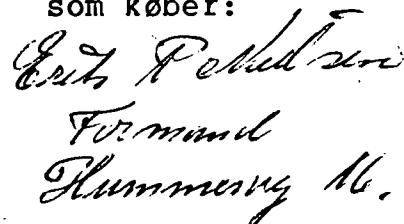 som køber:
Erik Pedersen
Formand
Hummervej 16.